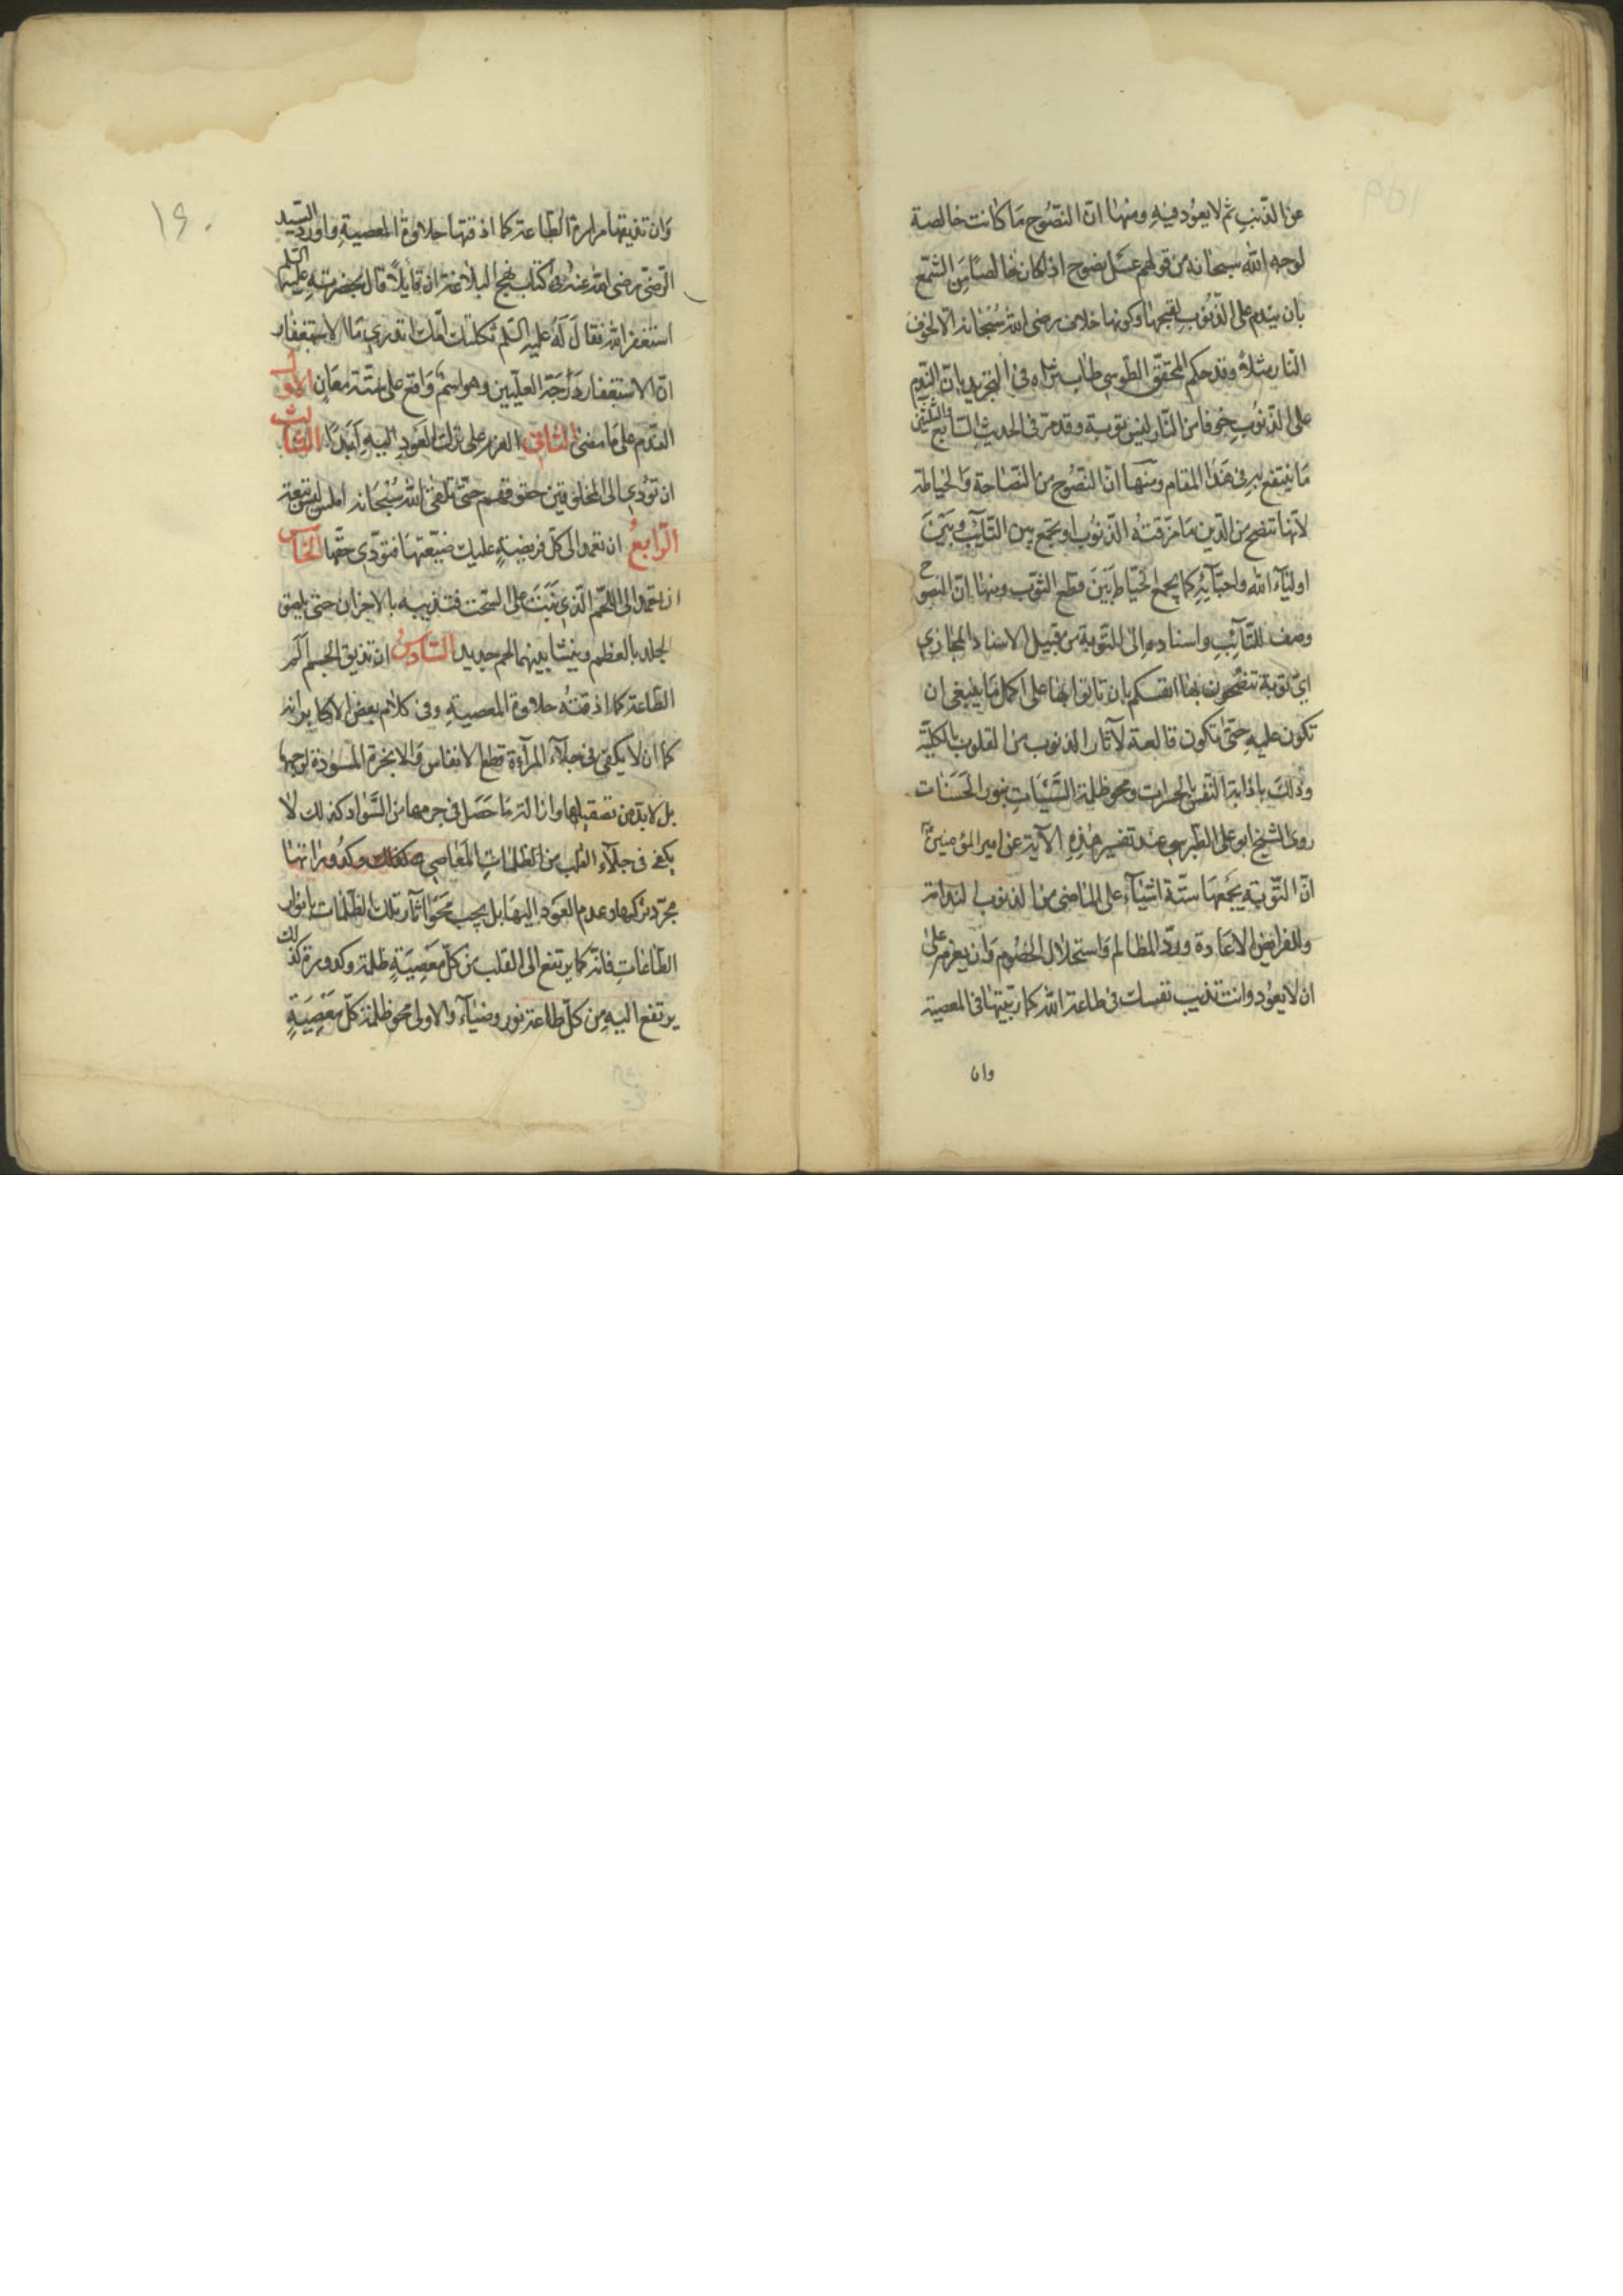 عن الذنب ثم لا يعود فيه ومنها ان النصوح ما كانت خالصة
لوجه الله سبحانه من قولهم عسل نصوح اذا كان خالصا من الشمع
بان يندم على الذنوب لقبحها وكونها خلاف رضى الله سبحانه لا لخوف
النار مثلا وقد حكم المحقق الطوسي طاب ثراه في التجريد بان الندم
على الذنوب خوفا من النار ليس توبة وقد مر في الحديث السابع والثلثين
ما ينتفع به في هذا المقام ومنها ان النصوح من النصاحة والخياطة
لانها تنصح من الدين ما مزقته الذنوب او يجمع بين التائب وبين
اولياء الله واحبائه كما يجمع الخياط بين قطع الثوب ومنها ان النصوح
وصف للتائب واسناده الى التوبة من قبيل الاسناد المجازي
اي توبة تنصحون بها انفسكم بان تاتوا بها على اكمل ما ينبغي ان
تكون عليه حتى تكون قالعة لآثار الذنوب من القلوب بالكلية
وذلك باذابة النفس بالحسرات ومحو ظلمة السيئات بنور الحسنات
روى الشيخ ابو علي الطبرسي عند تفسير هذه الآية عن امير المؤمنين
ان التوبة يجمعها ستة اشياء على الماضي من الذنوب الندامة
وللفرايض الاعادة ورد المظالم واستحلال الخصوم وان يعزم على
ان لا يعود وان تذيب نفسك في طاعة الله كما ربيتها في المعصية
وان
١٦٠
وان تذيقها مرارة الطاعة كما اذقتها حلاوة المعصية واورد السيد
الرضي رضى الله عنه في كتاب نهج البلاغة ان قائلا قال بحضرته عليه السلم
استغفر الله فقال له عليه السلم ثكلتك امك اتدري ما الاستغفار
ان الاستغفار درجة العليين وهو اسم واقع على ستة معان الاول
الندم على ما مضى الثاني العزم على ترك العود اليه ابدا الثالث
ان تؤدي الى المخلوقين حقوقهم حتى تلقى الله سبحانه املس ليس تبعة
الرابع ان تعمد الى كل فريضة عليك ضيعتها فتؤدي حقها الخامس
ان تعمد الى اللحم الذي نبت على السحت فتذيبه بالاحزان حتى يلصق
الجلد بالعظم وينشا بينهما لحم جديد السادس ان تذيق الجسم الم
الطاعة كما اذقته حلاوة المعصية وفي كلام بعض الاكابر انه
كما ان لا يكفي في جلاء المرآة قطع الانفاس والابخرة المسودة لوجهها
بل لا بد من تصقيلها وازالة ما حصل في جرمها من السواد كذلك لا
يكفي في جلاء القلب من ظلمات المعاصي وكدوراتها
مجرد تركها وعدم العود اليها بل يجب محو آثار تلك الظلمات بانوار
الطاعات فانه كما يرتفع الى القلب من كل معصية ظلمة وكدورة كذلك
يرتفع اليه من كل طاعة نور وضياء والاولى محو ظلمة كل معصية